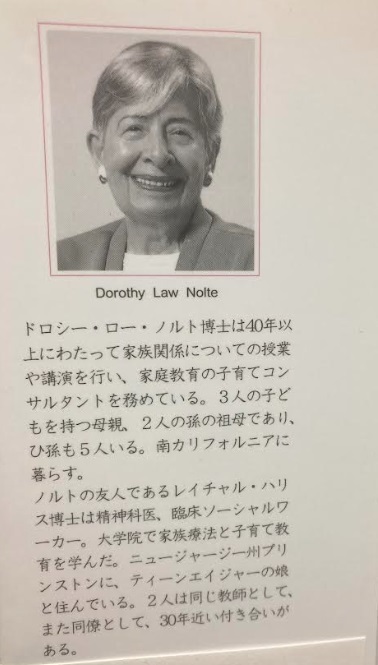 Dorothy Law Nolte
ドロシー・ロー・ノルト博士は40年以
上にわたって家族関係についての授業
や講演を行い、家庭教育の子育てコン
サルタントを務めている。3人の子ど
もを持つ母親、2人の孫の祖母であり、
ひ孫も5人いる。南カリフォルニアに
暮らす。
ノルトの友人であるレイチャル・ハリ
ス博士は精神科医、臨床ソーシャルワ
ーカー。大学院で家族療法と子育て教
育を学んだ。ニュージャージー州プリ
ンストンに、ティーンエイジャーの娘
と住んでいる。2人は同じ教師として、
また同僚として、30年近い付き合いが
ある。